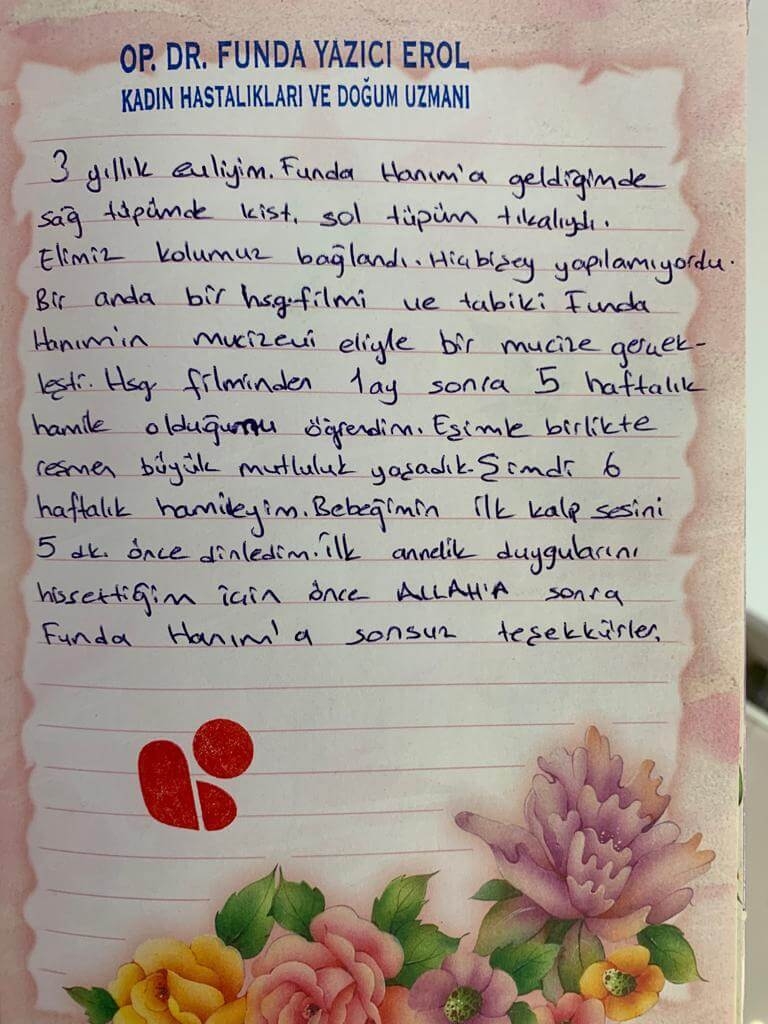 OP. DR. FUNDA YAZICI EROL
KADIN HASTALIKLARI VE DOĞUM UZMANI
3 yıllık evliyim. Funda Hanım'a geldiğimde
sağ tüpümde kist, sol tüpüm tıkalıydı.
Elimiz kolumuz bağlandı. Hiçbişey yapılamıyordu.
Bir anda bir hsg.filmi ve tabiki Funda
Hanım'ın mucizevi eliyle bir mucize gerçek-
leşti. Hsg filminden 1 ay sonra 5 haftalık
hamile olduğumu öğrendim. Eşimle birlikte
resmen büyük mutluluk yaşadık. Şimdi 6
haftalık hamileyim. Bebeğimin ilk kalp sesini
5 dk. önce dinledim. İlk annelik duygularını
hissettiğim için önce ALLAH'A sonra
Funda Hanım'a sonsuz teşekkürler.